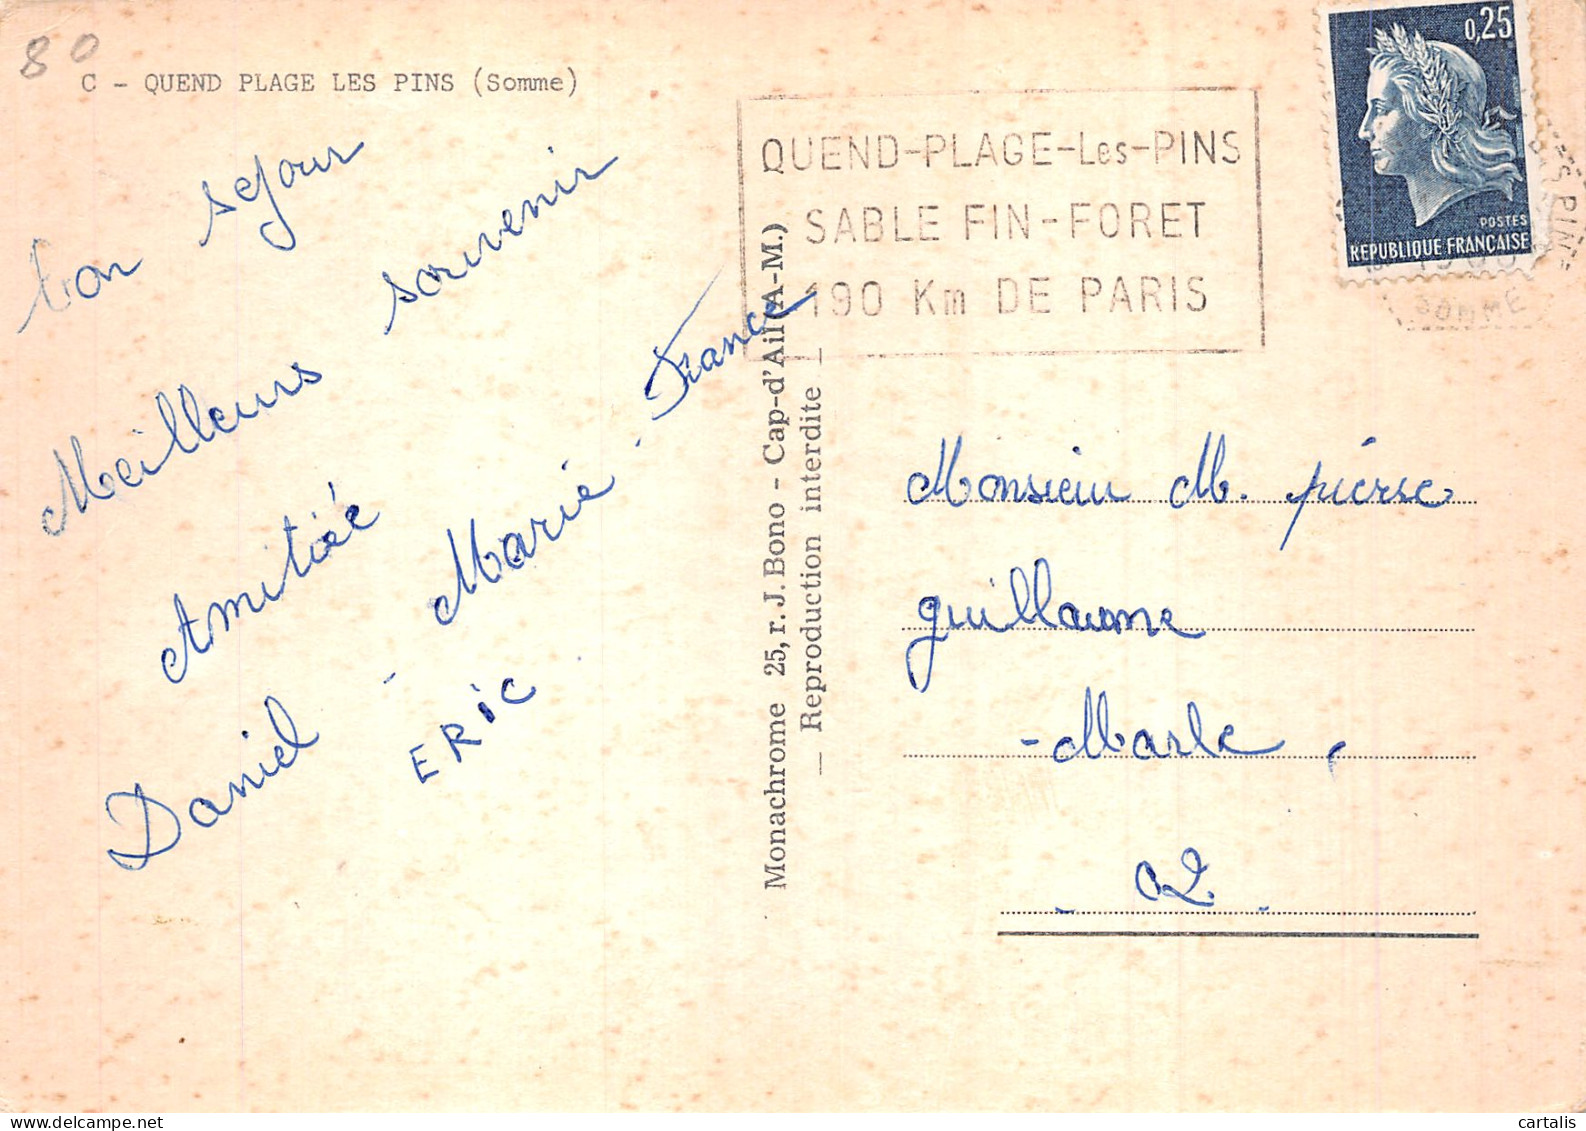 80
C - QUEND PLAGE LES PINS (Somme)
Bon sejour
Meilleurs souvenir
Amitiée
Daniel - Marie - France
ERIC
Monachrome 25, r. J. Bono - Cap-d'Ail (A-M.)
— Reproduction interdite —
QUEND-PLAGE-Les-PINS
SABLE FIN-FORET
190 Km DE PARIS
0,25
POSTES
REPUBLIQUE FRANÇAISE
SOMME
Monsieur M. pierre
guillaume
- Marle,
- 02. -
cartalis